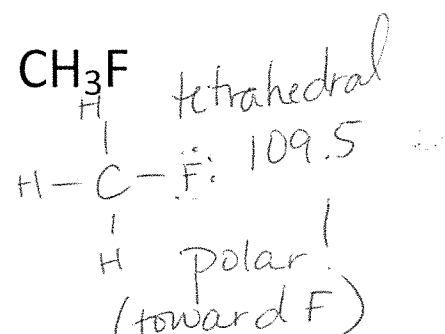 CH₃F
tetrahedral
109.5
H
H – C – F:
H
polar!
(toward F)